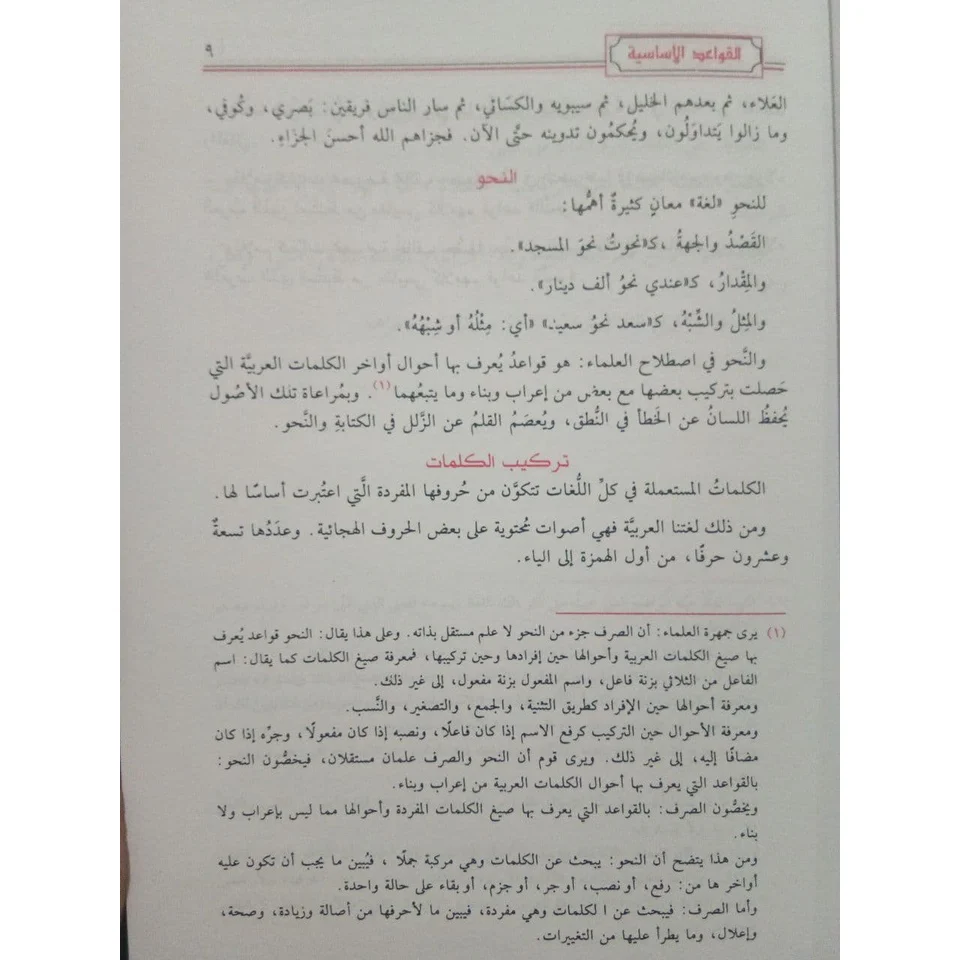 القواعد الأساسية
٩
العَلاء، ثم بعدهم الخليل، ثم سيبويه والكسَائي، ثم سار الناس فريقين: بَصري، وكُوفي،
وما زالوا يَتداوَلُون، ويُحكمُون تدوينه حتَّى الآن. فجزاهم الله أحسنَ الجزَاءِ.
النحو
للنحوِ «لغة» معانٍ كثيرةٌ أهمُّها:
القَصْدُ والجهةُ، كـ«نحوتُ نحوَ المسجد».
والمِقْدارُ، كـ«عندي نحوُ ألف دينار».
والمِثلُ والشِّبْهُ، كـ«سعد نحوُ سعيد» «أي: مِثْلُهُ أو شِبْهُهُ».
والنَّحو في اصطلاح العلماء: هو قواعدُ يُعرف بها أحوال أواخر الكلمات العربيَّة التي
حَصلت بتركيب بعضها مع بعض من إعراب وبناء وما يتبعُهما(١). وبمُراعاة تلك الأصُول
يُحفظُ اللسانُ عن الخَطأ في النُّطق، ويُعصَمُ القلمُ عن الزَّلل في الكتابةِ والنَّحو.
تركيب الكلمات
الكلماتُ المستعملة في كلِّ اللُّغات تتكوَّن من حُروفها المفردة الَّتي اعتُبرت أساسًا لها.
ومن ذلك لغتنا العربيَّة فهي أصوات مُحتوية على بعض الحروف الهجائية. وعدَدُها تسعةٌ
وعشرون حرفًا، من أول الهمزة إلى الياء.
(١) يرى جمهرة العلماء: أن الصرف جزء من النحو لا علم مستقل بذاته. وعلى هذا يقال: النحو قواعد يُعرف
بها صيغ الكلمات العربية وأحوالها حين إفرادها وحين تركيبها، فمعرفة صيغ الكلمات كما يقال: اسم
الفاعل من الثلاثي بزنة فاعل، واسم المفعول بزنة مفعول، إلى غير ذلك.
ومعرفة أحوالها حين الإفراد كطريق التثنية، والجمع، والتصغير، والنَّسب.
ومعرفة الأحوال حين التركيب كرفع الاسم إذا كان فاعلًا، ونصبه إذا كان مفعولًا، وجرِّه إذا كان
مضافًا إليه، إلى غير ذلك. ويرى قوم أن النحو والصرف علمان مستقلان، فيخصُّون النحو:
بالقواعد التي يعرف بها أحوال الكلمات العربية من إعراب وبناء.
ويخصُّون الصرف: بالقواعد التي يعرف بها صيغ الكلمات المفردة وأحوالها مما ليس بإعراب ولا
بناء.
ومن هذا يتضح أن النحو: يبحث عن الكلمات وهي مركبة جملًا، فيُبين ما يجب أن تكون عليه
أواخرها من: رفع، أو نصب، أو جر، أو جزم، أو بقاء على حالة واحدة.
وأما الصرف: فيبحث عن ا لكلمات وهي مفردة، فيبين ما لأحرفها من أصالة وزيادة، وصحة،
وإعلال، وما يطرأ عليها من التغييرات.